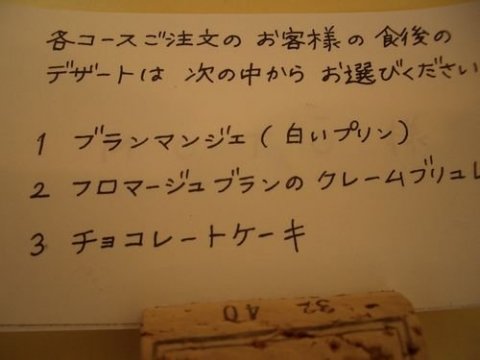 各コースご注文の お客様の 食後の
デザートは 次の中から お選びください
1 ブランマンジェ ( 白いプリン )
2 フロマージュブランの クレームブリュレ
3 チョコレートケーキ
32
40